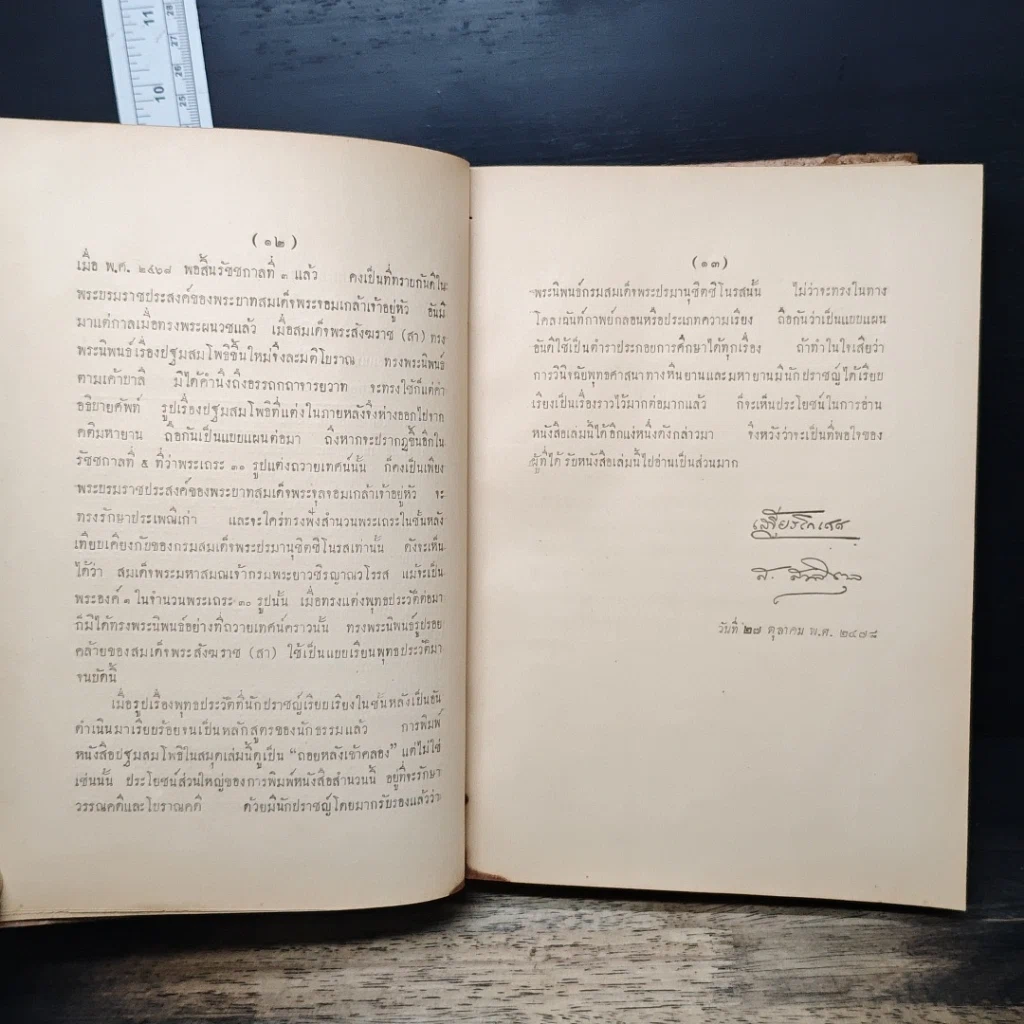 11
10
28
27
26
25
(๑๒)
เมื่อ พ.ศ. ๒๔๖๘ พอสิ้นรัชชกาลที่ ๓ แล้ว คงเป็นที่ทราบกันดีใน
พระบรมราชประสงค์ของพระบาทสมเด็จพระจอมเกล้าเจ้าอยู่หัว อันมี
มาแต่กาลเมื่อทรงพระผนวชแล้ว เมื่อสมเด็จพระสังฆราช (สา) ทรง
พระนิพนธ์เรื่องปฐมสมโพธิขึ้นใหม่จึงละมติโบราณ ทรงพระนิพนธ์
ตามเค้าบาลี มิได้คำนึงถึงอรรถกถาจารยวาท จะทรงใช้ก็แต่คำ
อธิบายศัพท์ รูปเรื่องปฐมสมโพธิที่แต่งในภายหลังจึงห่างออกไปจาก
คติมหายาน ถือกันเป็นแบบแผนต่อมา ถึงหากจะปรากฏขึ้นอีกใน
รัชชกาลที่ ๕ ที่ว่าพระเถระ ๓๐ รูปแต่งถวายเทศน์นั้น ก็คงเป็นเพียง
พระบรมราชประสงค์ของพระบาทสมเด็จพระจุลจอมเกล้าเจ้าอยู่หัว จะ
ทรงรักษาประเพณีเก่า และจะใคร่ทรงฟังสำนวนพระเถระในชั้นหลัง
เทียบเคียงกับของกรมสมเด็จพระปรมานุชิตชิโนรสเท่านั้น ดังจะเห็น
ได้ว่า สมเด็จพระมหาสมณเจ้ากรมพระยาวชิรญาณวโรรส แม้จะเป็น
พระองค์ ๑ ในจำนวนพระเถระ ๓๐ รูปนั้น เมื่อทรงแต่งพุทธประวัติต่อมา
ก็มิได้ทรงพระนิพนธ์อย่างที่ถวายเทศน์คราวนั้น ทรงพระนิพนธ์รูปรอย
คล้ายของสมเด็จพระสังฆราช (สา) ใช้เป็นแบบเรียนพุทธประวัติมา
จนบัดนี้
เมื่อรูปเรื่องพุทธประวัติที่นักปราชญ์เรียบเรียงในชั้นหลังเป็นอัน
ดำเนินมาเรียบร้อยจนเป็นหลักสูตรของนักธรรมแล้ว การพิมพ์
หนังสือปฐมสมโพธิในสมุดเล่มนี้ดูเป็น “ถอยหลังเข้าคลอง” แต่ไม่ใช่
เช่นนั้น ประโยชน์ส่วนใหญ่ของการพิมพ์หนังสือสำนวนนี้ อยู่ที่จะรักษา
วรรณคดีและโบราณคดี ด้วยมีนักปราชญ์โดยมากรับรองแล้วว่า
(๑๓)
พระนิพนธ์กรมสมเด็จพระปรมานุชิตชิโนรสนั้น ไม่ว่าจะทรงในทาง
โคลงฉันท์กาพย์กลอนหรือประเภทความเรียง ถือกันว่าเป็นแบบแผน
อันดีใช้เป็นตำราประกอบการศึกษาได้ทุกเรื่อง ถ้าทำในใจเสียว่า
การวินิจฉัยพุทธศาสนาทางหินยานและมหายานมีนักปราชญ์ได้เรียบ
เรียงเป็นเรื่องราวไว้มากต่อมากแล้ว ก็จะเห็นประโยชน์ในการอ่าน
หนังสือเล่มนี้ได้อีกแง่หนึ่งดังกล่าวมา จึงหวังว่าจะเป็นที่พอใจของ
ผู้ที่ได้รับหนังสือเล่มนี้ไปอ่านเป็นส่วนมาก
เสฐียรโกเศศ
วันที่ ๒๘ ตุลาคม พ.ศ. ๒๔๗๘